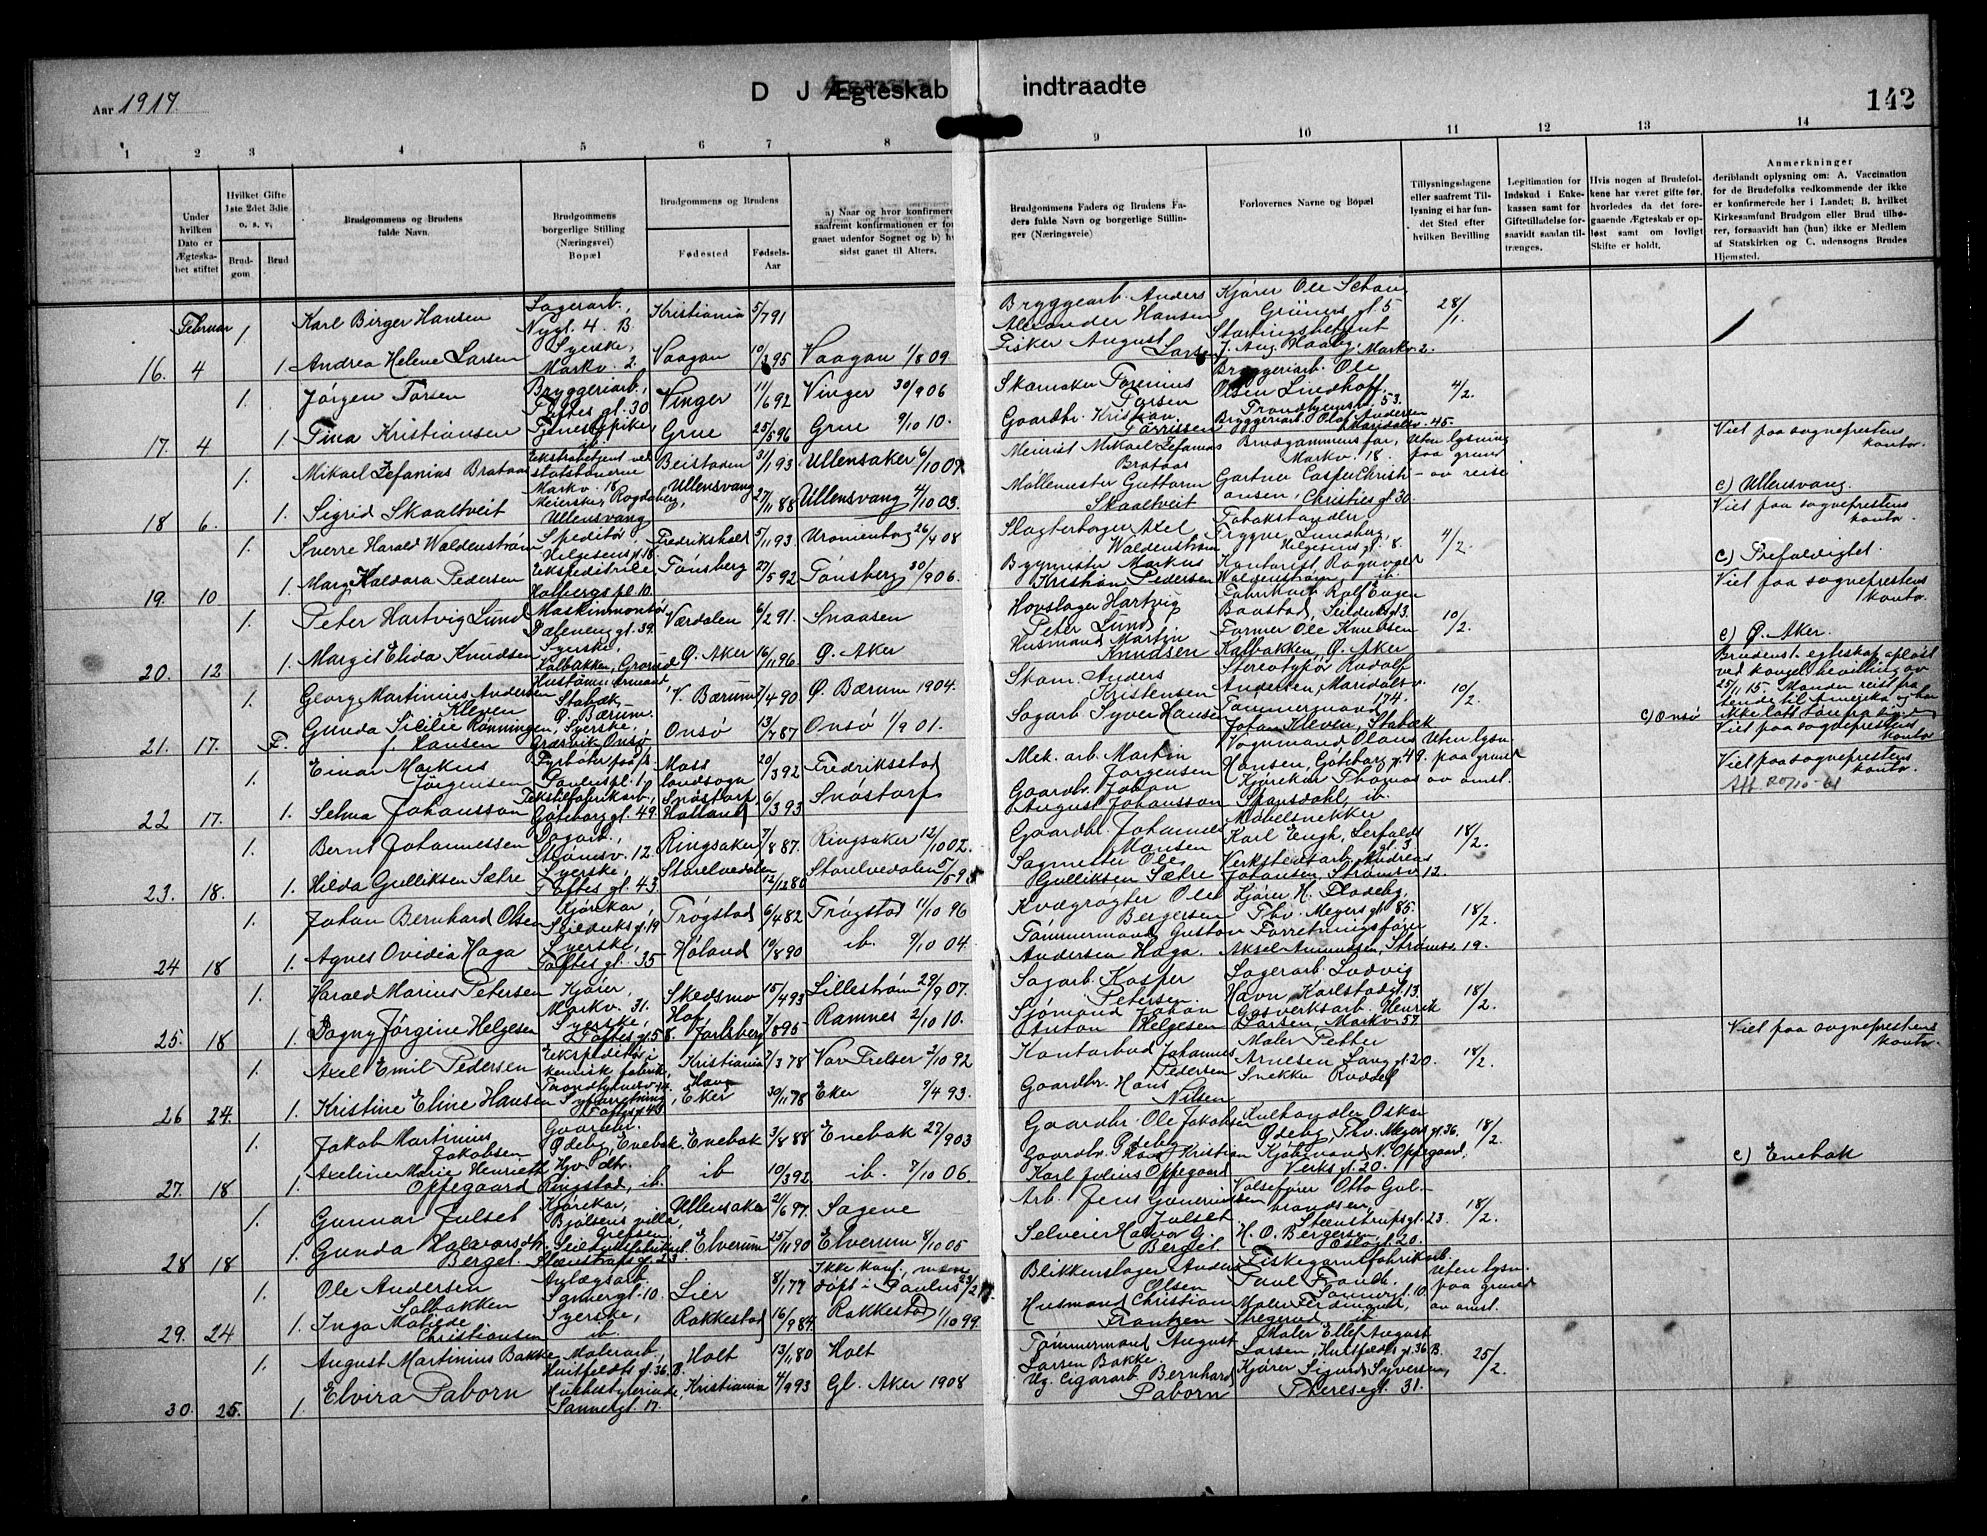 Aar 1917
D J Ægteskab indtraadte
142
1 2 3 4 5 6 7 8 9 10 11 12 13 14
Under hvilken Dato er Ægteskabet stiftet
Hvilket Gifte 1ste 2det 3die o. s. v,
Brudgom
Brud
Brudgommens og Brudens fulde Navn.
Brudgommens borgerlige Stilling (Næringsvei) Bopæl
Brudgommens og Brudens
Fødested
Fødsels-Aar
a) Naar og hvor konfirmere
saafremt konfirmationen er for
gaaet udenfor Sognet og b) h
sidst gaaet til Alters.
Brudgommens Faders og Brudens Faders fulde Navn og borgerlige Stillinger (Næringsveie)
Forlovernes Navne og Bopæl
Tillysningsdagene eller saafremt Tillysning ei har fundet Sted efter hvilken Bevilling
Legitimation for Indskud i Enkekassen samt for Giftetilladelse forsaavidt saadan tiltrænges.
Hvis nogen af Brudefolkene har været gifte før, hvorledes da det foregaaende Ægteskab er opløst samt om lovligt Skifte er holdt.
Anmerkninger
deriblandt oplysning om: A. Vaccination for de Brudefolks vedkommende der ikke er konfirmerede her i Landet; B. hvilket Kirkesamfund Brudgom eller Brud tilhører, forsaavidt han (hun) ikke er Medlem af Statskirken og C. udensogns Brudes Hjemsted.
Februar
1. Karl Birger Hansen Lagerarb., Nygt. 4. B Kristiania 5/7 91 Bryggearb. Anders Alexander Hansen Kjører Ole Schou, Grüners gt. 5 28/1.
16. 4 1. Andrea Helene Larsen Syerske, Markv. 2 Vaagan 10/3 95 Vaagan 1/8 09 Fisker August Larsen J. Aug. Haaby, Markv. 2.
1. Jörgen Torsen Bryggeriarb., Toftes gt. 30 Vinger 11/6 92 Vinger 30/9 06 Skomaker Torenius Torsen Bryggeriarb. Ole Olsen Lindhoff, Trondhjemsv. 53. 4/2.
17. 4 1. Tina Kristiansen Tjenestepike, ib. Grue 25/5 96 Grue 9/10 10. Gaardbr. Kristian Bryggeriarb. Olaf Andersen Maridalsv. 45.
1. Mikael Zefanias Brataas Ekstrabetjent ved statsbanerne Markv. 18 Beistaden 31/1 93 Ullensaker 6/10 07 Meierist Mikael Zefanias Brataas Brudgommens far, Markv. 18. Uten lysning paa grund av reise Viet paa sogneprestens kontor.
18 6. 1. Sigrid Skaaltveit Meierske, Ullensvang Ullensvang 27/11 88 Ullensvang 4/10 03. Møllemester Guttorm Skaaltveit Gartner Casper Christiansen, Christies gt. 30. c) Ullensvang.
1. Sverre Harald Waldenstrøm Speditør, Helgesens gt. 18 Fredrikshald 5/11 93. Uranienborg 26/4 08 Slagterborger Axel Waldenstrøm Tobakshandler Trygve Lundberg, Helgesens gt. 8. 4/2. Viet paa sogneprestens kontor.
19. 10 1. Margit Haldora Pedersen Ekspeditrice Holbergs pl. 10. Tønsberg 27/5 92 Tønsberg 30/9 06. Bygmester Markus Kristian Pedersen Kontorist Ragnvald Waldenstrøm, ib. c) Trefoldighet.
1. Peter Hartvig Lund Maskinmontør Dælenenggt. 39. Værdalen 6/2 91. Snaasen Hovslager Hartvig Peter Lund Fabrikeier Rolf Engen Baastad, Seilduksgt. 3. 10/2. Viet paa sogneprestens kontor.
20. 12 1. Margit Elida Knudsen Syerske, Kalbakken, Grorud Ø. Aker 16/11 96 Ø. Aker Husmand Martin Knudsen Former Ole Knudsen Kalbakken, Ø. Aker c) Ø. Aker.
1. Georg Martinius Andersen Kleven Stabæk, Ø. Bærum. V. Bærum 7/4 90 Ø. Bærum 1904. Skom. Anders Kristensen Stereotypør Rudolf Andersen, Maridalsv. 174. 10/2. Brudens 1. egteskap opløst ved kongel. bevilling av 25/11 15. Manden reist fra hende til Amerika og har ikke latt høre fra sig. Viet paa sogneprestens kontor
21. 17. F. Gunda Sicilie Rönningen, f. Hansen Syerske, Græsvik Onsø, Onsø 13/7 87 Onsø 1/9 01. Sagarb. Syver Hansen Tømmermand Johan Kleven, Stabæk c) Onsø
1. Einar Markus Jørgensen Fyrbøter, Pauluspl. 1, Moss landsogn 20/3 92 Fredriksstad Mek. arb. Martin Jorgensen Vognmand Olaus Hansen, Göteborg gt. 49. Uten lysn. paa grund av omst. Viet paa sogneprestens kontor.
22 17. 1. Selma Johansson Tekstilfabrikarb., Göteborg gt. 49 Snöstorp Halland 6/3 93 Snöstorp Gaardbr. Johan August Johansson Kjørekar Thomas Spansdahl, ib. Att 20/10-61
1. Bernt Johannessen Dagarb., Strømsv. 12. Ringsaker 7/8 87. Ringsaker 12/10 02. Gaardbr. Johannes Hansen Møbelsnekker Karl Engh, Herfølds gt. 3 18/2.
23. 18. 1. Hilda Gulliksen Sætre Syerske, Toftes gt. 43 Storelvedalen 12/12 80 Storelvedalen 5/5 95 Sagmester Ole Gulliksen Sætre Verkstedarb. Andreas Johansen, Strømsv 12.
1. Johan Bernhard Olsen Kjørekar, Seilduks gt. 19 Trøgstad 6/4 82 Trøgstad 11/10 96 Kvægrøgter Ole Bergersen Kjører H. Flodeby, Thv. Meyers gt. 85. 18/2.
24 18 1. Agnes Ovidia Haga Syerske, Toftes gt. 35 Høland 19/8 90 ib. 9/10 04. Tømmermand Gustav Andersen Haga. Forretningsfører Aksel Amundsen, Strømsv. 19.
1. Harald Marius Petersen Kjører, Markv. 31. Skedsmo 15/4 93 Lillestrøm 29/9 07. Sagarb. Kasper Petersen. Lagerarb. Ludvig Havn, Karlstadgt. 13. 18/2.
25. 18 1. Dagny Jörgine Helgesen Syerske, Toftes gt. 58. Hof Jarlsberg 7/8 95 Ramnes 2/10 10. Sjømand Johan Anton Helgesen Gasverksarb. Henrik Larsen, Markv 57.
1. Axel Emil Pedersen Ekspeditør i kemisk fabrik, Trondhjemsv. 14. Kristiania 7/3 78 Vor Frelser 2/10 92 Kontorbud Johannes Pedersen Maler Petter Arnesen Lang gt. 20. 18/2. Viet paa sogneprestens kontor.
26 24. 1. Kristine Eline Hansen Syforretning, Toftes gt. 43 Eker 30/11 78 Eker 9/4 93. Gaardbr. Hans Nilsen Snekker
1. Jakob Martinius Jakobsen Gaardbr. Ødeby, Enebak. Enebak 3/8 88 Enebak 27/9 03 Gaardbr. Ole Jakobsen Ødeby Kulhandler Oskar Ødeby, Thv. Meyers gt. 36. 18/2.
27. 18 1. Axeline Marie Henriette Oppegaard Hjv. dtr. Ringstad, ib. ib 10/3 92 ib. 7/10 06. Gaardbr. Kristian Karl Julius Oppegaard Kjøbmand N. Oppegaard, Verks gt. 20. c) Enebak
1. Gunnar Julset Kjørekar, Bjølsens villa, Grefsen Ullensaker 2/6 97. Sagene Arb. Jens Gunerius Julset Valsefører Otto Gulbrandsen, Steenstrupsgt. 23. 18/2.
28 18 1. Gunda Halvorsdtr. Berget. Seildugsfabrikarb. Steenstrupsgt. 23. Elverum 25/11 90 Elverum 8/10 05 Selveier Halvor G. Berget H. O. Bergersen, Oslogt. 20.
1. Ole Andersen Solbakken Anlægsarb. Sannergt. 10. Lier 8/1 77 Ikke konf. men døpt i Paulus 23/2 17. Blikkenslager Anders Olsen Fiskegarnfabrikarb. Paul Sannergt. 10 Uten lysn. paa grund av omst.
29. 24 1. Inga Matilde Christiansen Syerske, ib. Rakkestad 16/9 84 Rakkestad 1/10 99. Husmand Christian Frantzen Maler Ferdinand ib
1. August Martinius Bakke Malerarb., Huitfeldts gt. 36 B. Holt 13/1 80 Holt Tømmermand August Larsen Bakke. Maler Ellef August Larsen, Huitfeldts gt. 36 B. 25/2
30. 25. 1. Elvira Paborn Husbestyrerinde, Sannergt. 17. Kristiania 4/9 93 Gl. Aker 1908 Cigararb. Bernhard Paborn Kjører Sigurd Syversen, Theresegt. 31.